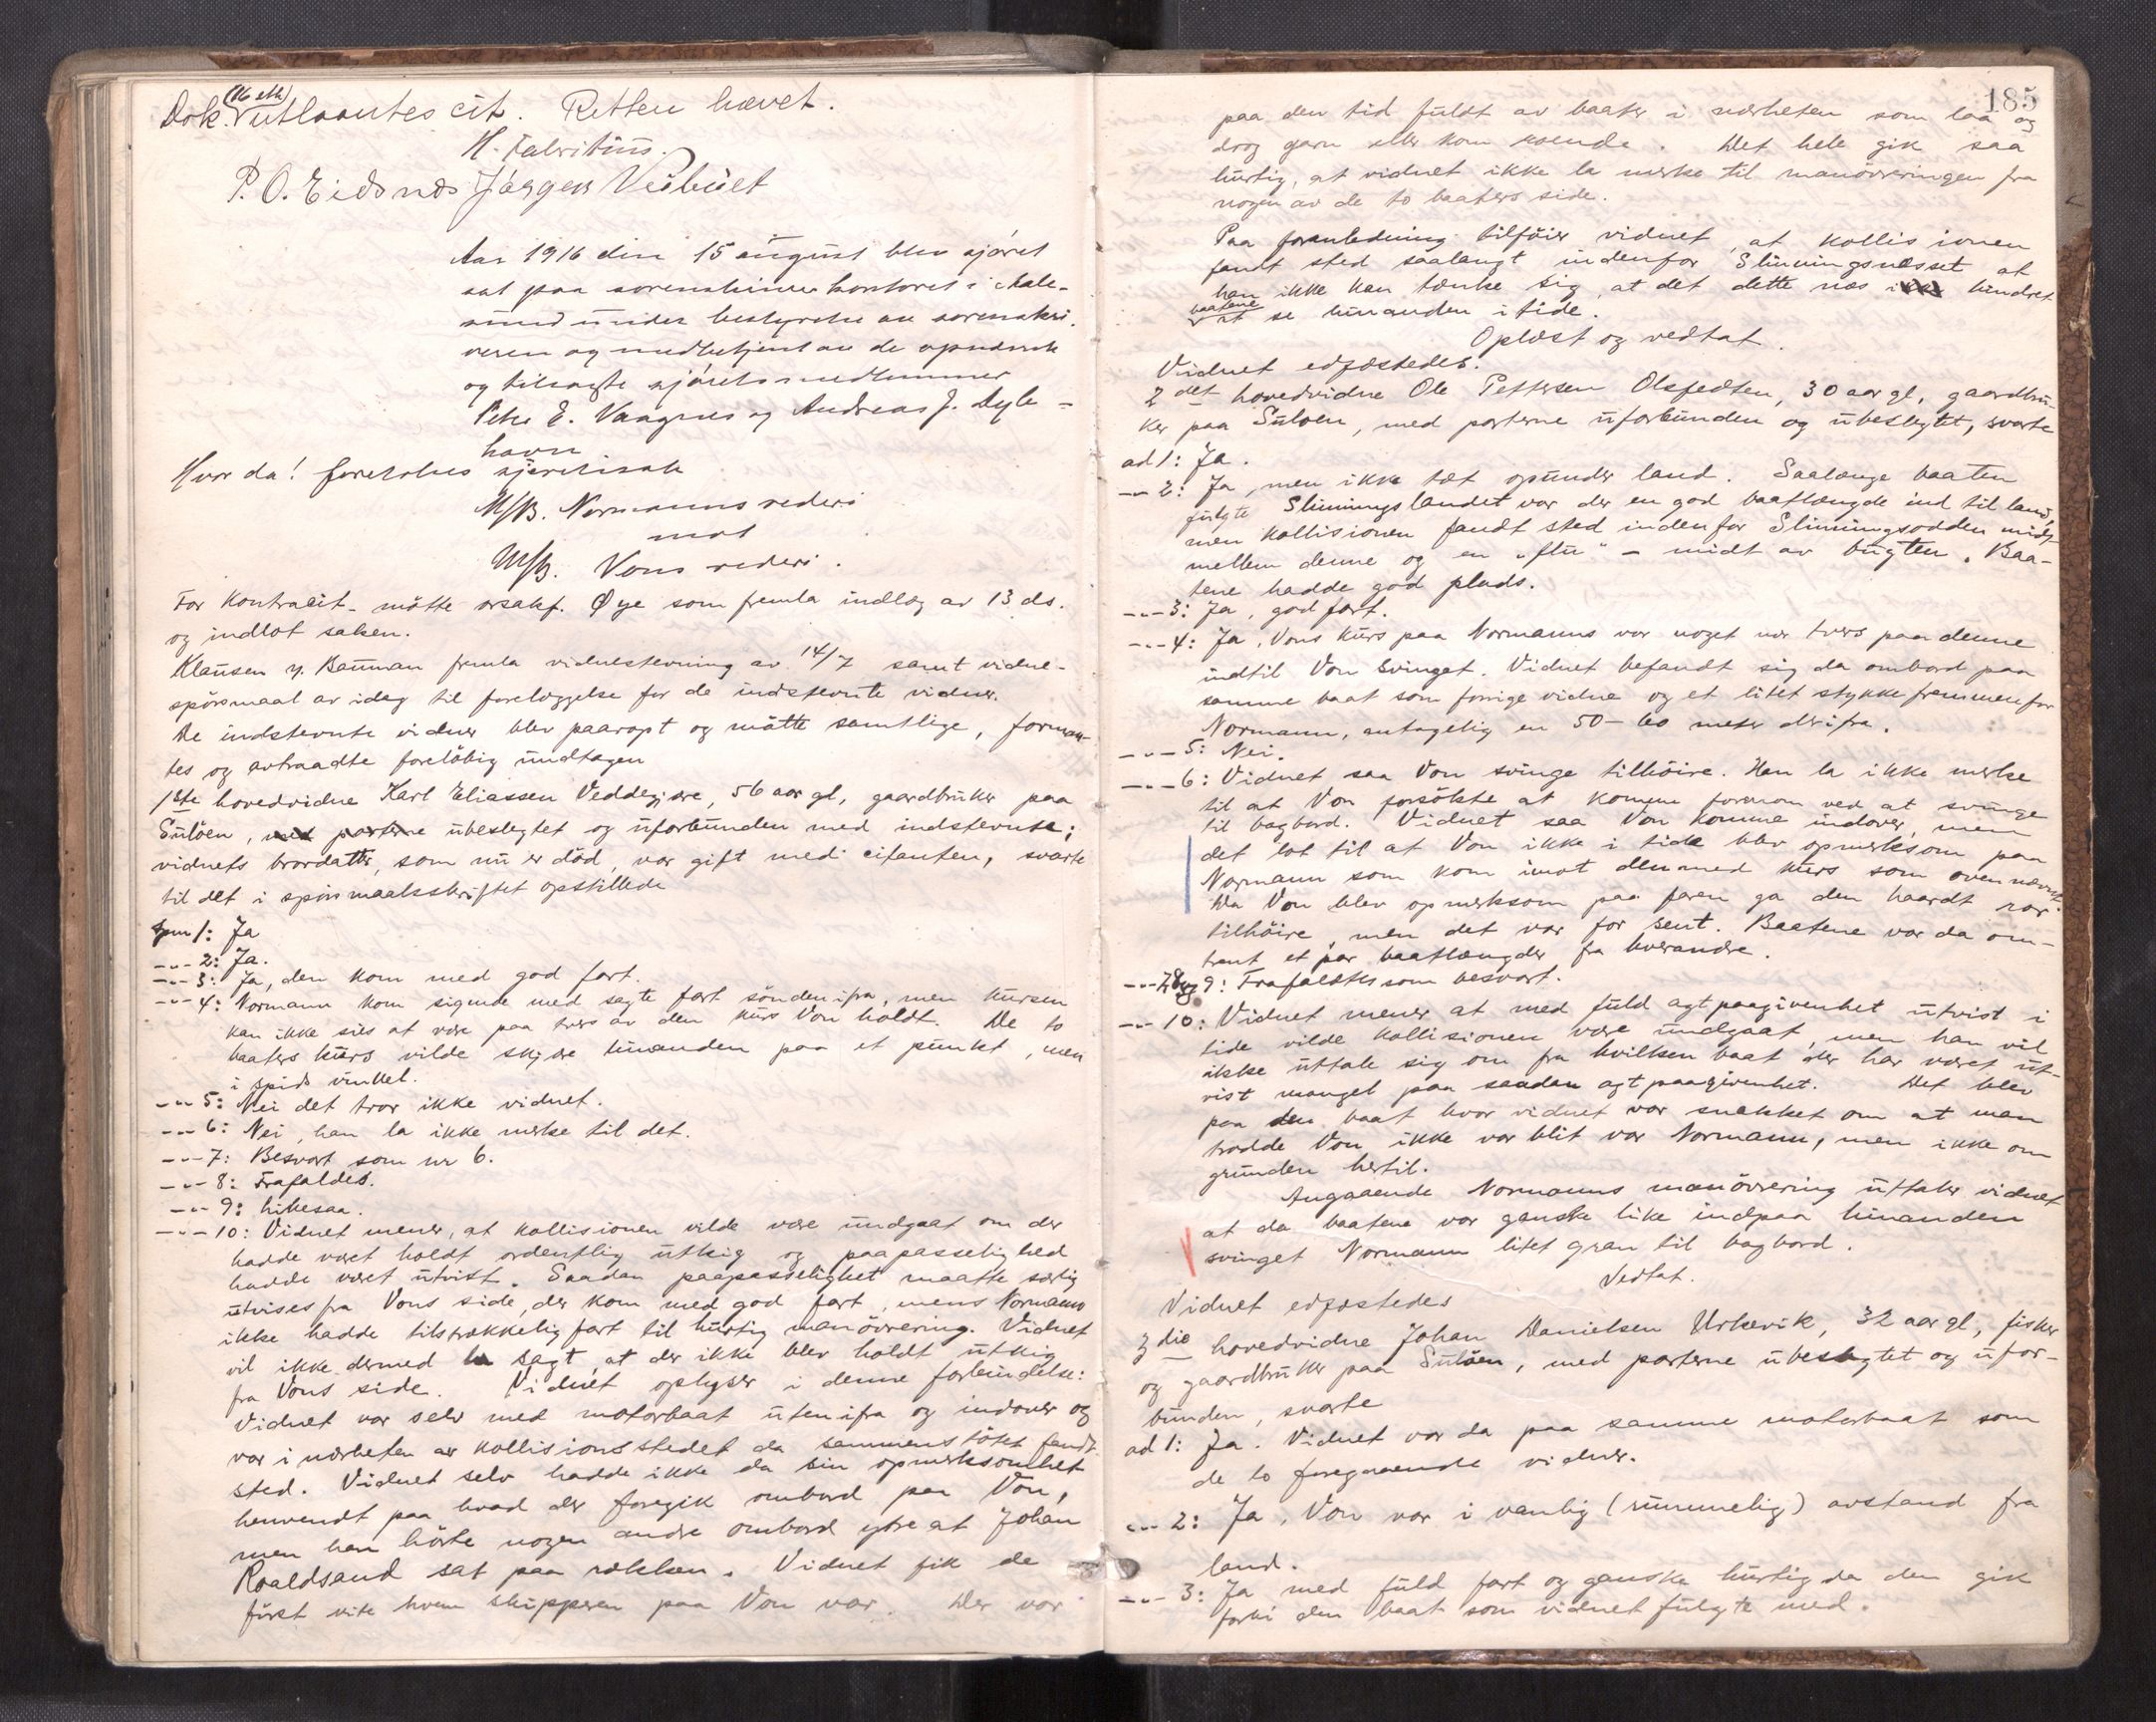 (16 stk)
Dok. utlaantes cit. Retten hævet.
H. Fabritius.
P. O. Eidsnes Jørgen
Aar 1916 den 15 august blev sjøret
sat paa sorenskriverkontoret i Aale-
sund under bestyrelse av sorenskri-
veren og medbetjent av de opnævnte
og tilsagte sjøretsmedlemmer
Peter E. Vaagnes og Andreas J. Dyb-
havn
Hvor da! foretokes sjøretssak
M/B. Normanns rederi
mot
M/B. Vons rederi.
For kontracit. mötte orsakf. Øye som fremla indlæg av 13 ds.
og indlot saken.
Klausen y. Bauman fremla vidnestevning av 14/7 samt vidne-
spörsmaal av idag til foreloggelse for de indstevnte vidner.
De indstevnte vidner blev paaropt og mötte samtlige, forman-
tes og avtraadte forelöbig undtagen
1ste hovedvidne Karl Eliassen Veddegjære, 56 aar gl, gaardbruker paa
Sulöen, med parterne ubeslegtet og uforbunden med indstevnte;
vidnets brordatter, som nu er död, var gift med citanten, svarte
til det i spörsmaalsskriftet opstillede
Spm 1: Ja
-"- 2: Ja.
-"- 3: Ja, den kom med god fart.
-"- 4: Normann kom sigende med sagte fart söndenifra, men kursen
kan ikke sies at være paa tvers av den kurs Von holdt. De to
baaters kurs vilde skjære hinanden paa et punkt, men
i spids vinkel.
-"- 5: Nei det tror ikke vidnet.
-"- 6: Nei, han la ikke merke til det.
-"- 7: Besvart som nr 6.
-"- 8: Frafaldes.
-"- 9: Likesaa.
-"- 10: Vidnet mener, at kollisionen vilde være undgaat om der
hadde været holdt ordentlig utkig og paapasselighed
hadde været utvist. Saadan paapasselighet maatte særlig
utvises fra Vons side, der kom med god fart, mens Normann
ikke hadde tilstrækkelig fart til hurtig manövrering. Vidnet
vil ikke dermed ha sagt, at der ikke blev holdt utkig
fra Vons side. Vidnet oplyser i denne forbindelse:
Vidnet var selv med motorbaat utenifra og indover og
var i nærheten av kollisionsstedet da sammenstötet fandt
sted. Vidnet selv hadde ikke da sin opmerksomhet
henvendt paa hvad der foregik ombord paa Von,
men han hörte nogen andre ombord ytre at Johan
Roaldsand sat paa rækken. Vidnet fik de
först vite hvem skipperen paa Von var. Der var
185
paa den tid fuldt av baater i nærheten som laa og
drog garn eller kom roende. Det hele gik saa
hurtig, at vidnet ikke la merke til manövreringen fra
nogen av de to baaters side.
Paa foranledning tilföier vidnet, at kollisionen
fandt sted saalangt indenfor Slinningsnesset at
han ikke kan tænke sig, at det dette nes hindret
baatene
at se hinanden itide.
Oplæst og vedtat.
Vidnet edfæstedes.
2det hovedvidne Ole Pettersen Olsfedten, 30 aar gl, gaardbru-
ker paa Suloen, med parterne uforbunden og ubeslegtet, svarte
ad 1: Ja.
-"- 2: Ja, men ikke tæt opunder land. Saalænge baaten
fulgte Slinningslandet var der en god baatlængde ind til land,
men kollisionen fandt sted indenfor Slinningsodden midt
mellem denne og en "flu" - midt av bugten. Baa-
tene hadde god plads.
-"- 3: Ja, god fart.
-"- 4: Ja, Vons kurs paa Normanns var noget nær tvers paa denne
indtil Von svinget. Vidnet befandt sig da ombord paa
samme baat som forrige vidne og et litet stykke fremmenfor
Normann, antagelig en 50-60 meter derifra.
-"- 5: Nei.
-"- 6: Vidnet saa Von svinge tilhöire. Han la ikke merke
til at Von forsökte at komme forom ved at svinge
til bagbord. Vidnet saa Von komme indover, men
det lot til at Von ikke i tide blev opmerksom paa
Normann som kom imot den med kurs som ovennævnt
Da Von blev opmerksom paa faren ga den haardt ror
tilhöire, men det var for sent. Baatene var da om-
trent et par baatlængder fra hverandre.
-"- 7 8 og 9: Frafaldtes som besvart.
-"- 10: Vidnet mener at med fuld agtpaagivenhet utvist i
tide vilde kollisionen være undgaat, men han vil
ikke uttale sig om fra hvilken baat der har været ut-
vist mangel paa saadan agtpaagivenhet. Det blev
paa den baat hvor vidnet var snakket om at man
trodde Von ikke var blit var Normann, men ikke om
grunden hertil.
Angaaende Normanns manövrering uttaler vidnet
at da baatene var ganske like indpaa hinanden
svinget Normann litet gran til bagbord.
Vedtat.
Vidnet edfæstedes
3die hovedvidne Johan Danielsen Urkevik, 32 aar gl, fisker
og gaardbruker paa Sulöen, med parterne ubeslegtet og ufor-
bunden, svarte
ad 1: Ja. Vidnet var da paa samme motorbaat som
de to foregaaende vidner.
-"- 2: Ja, Von var i vanlig (rummelig) avstand fra
land.
-"- 3: Ja med fuld fart og ganske hurtig da den gik
forbi den baat som vidnet fulgte med.